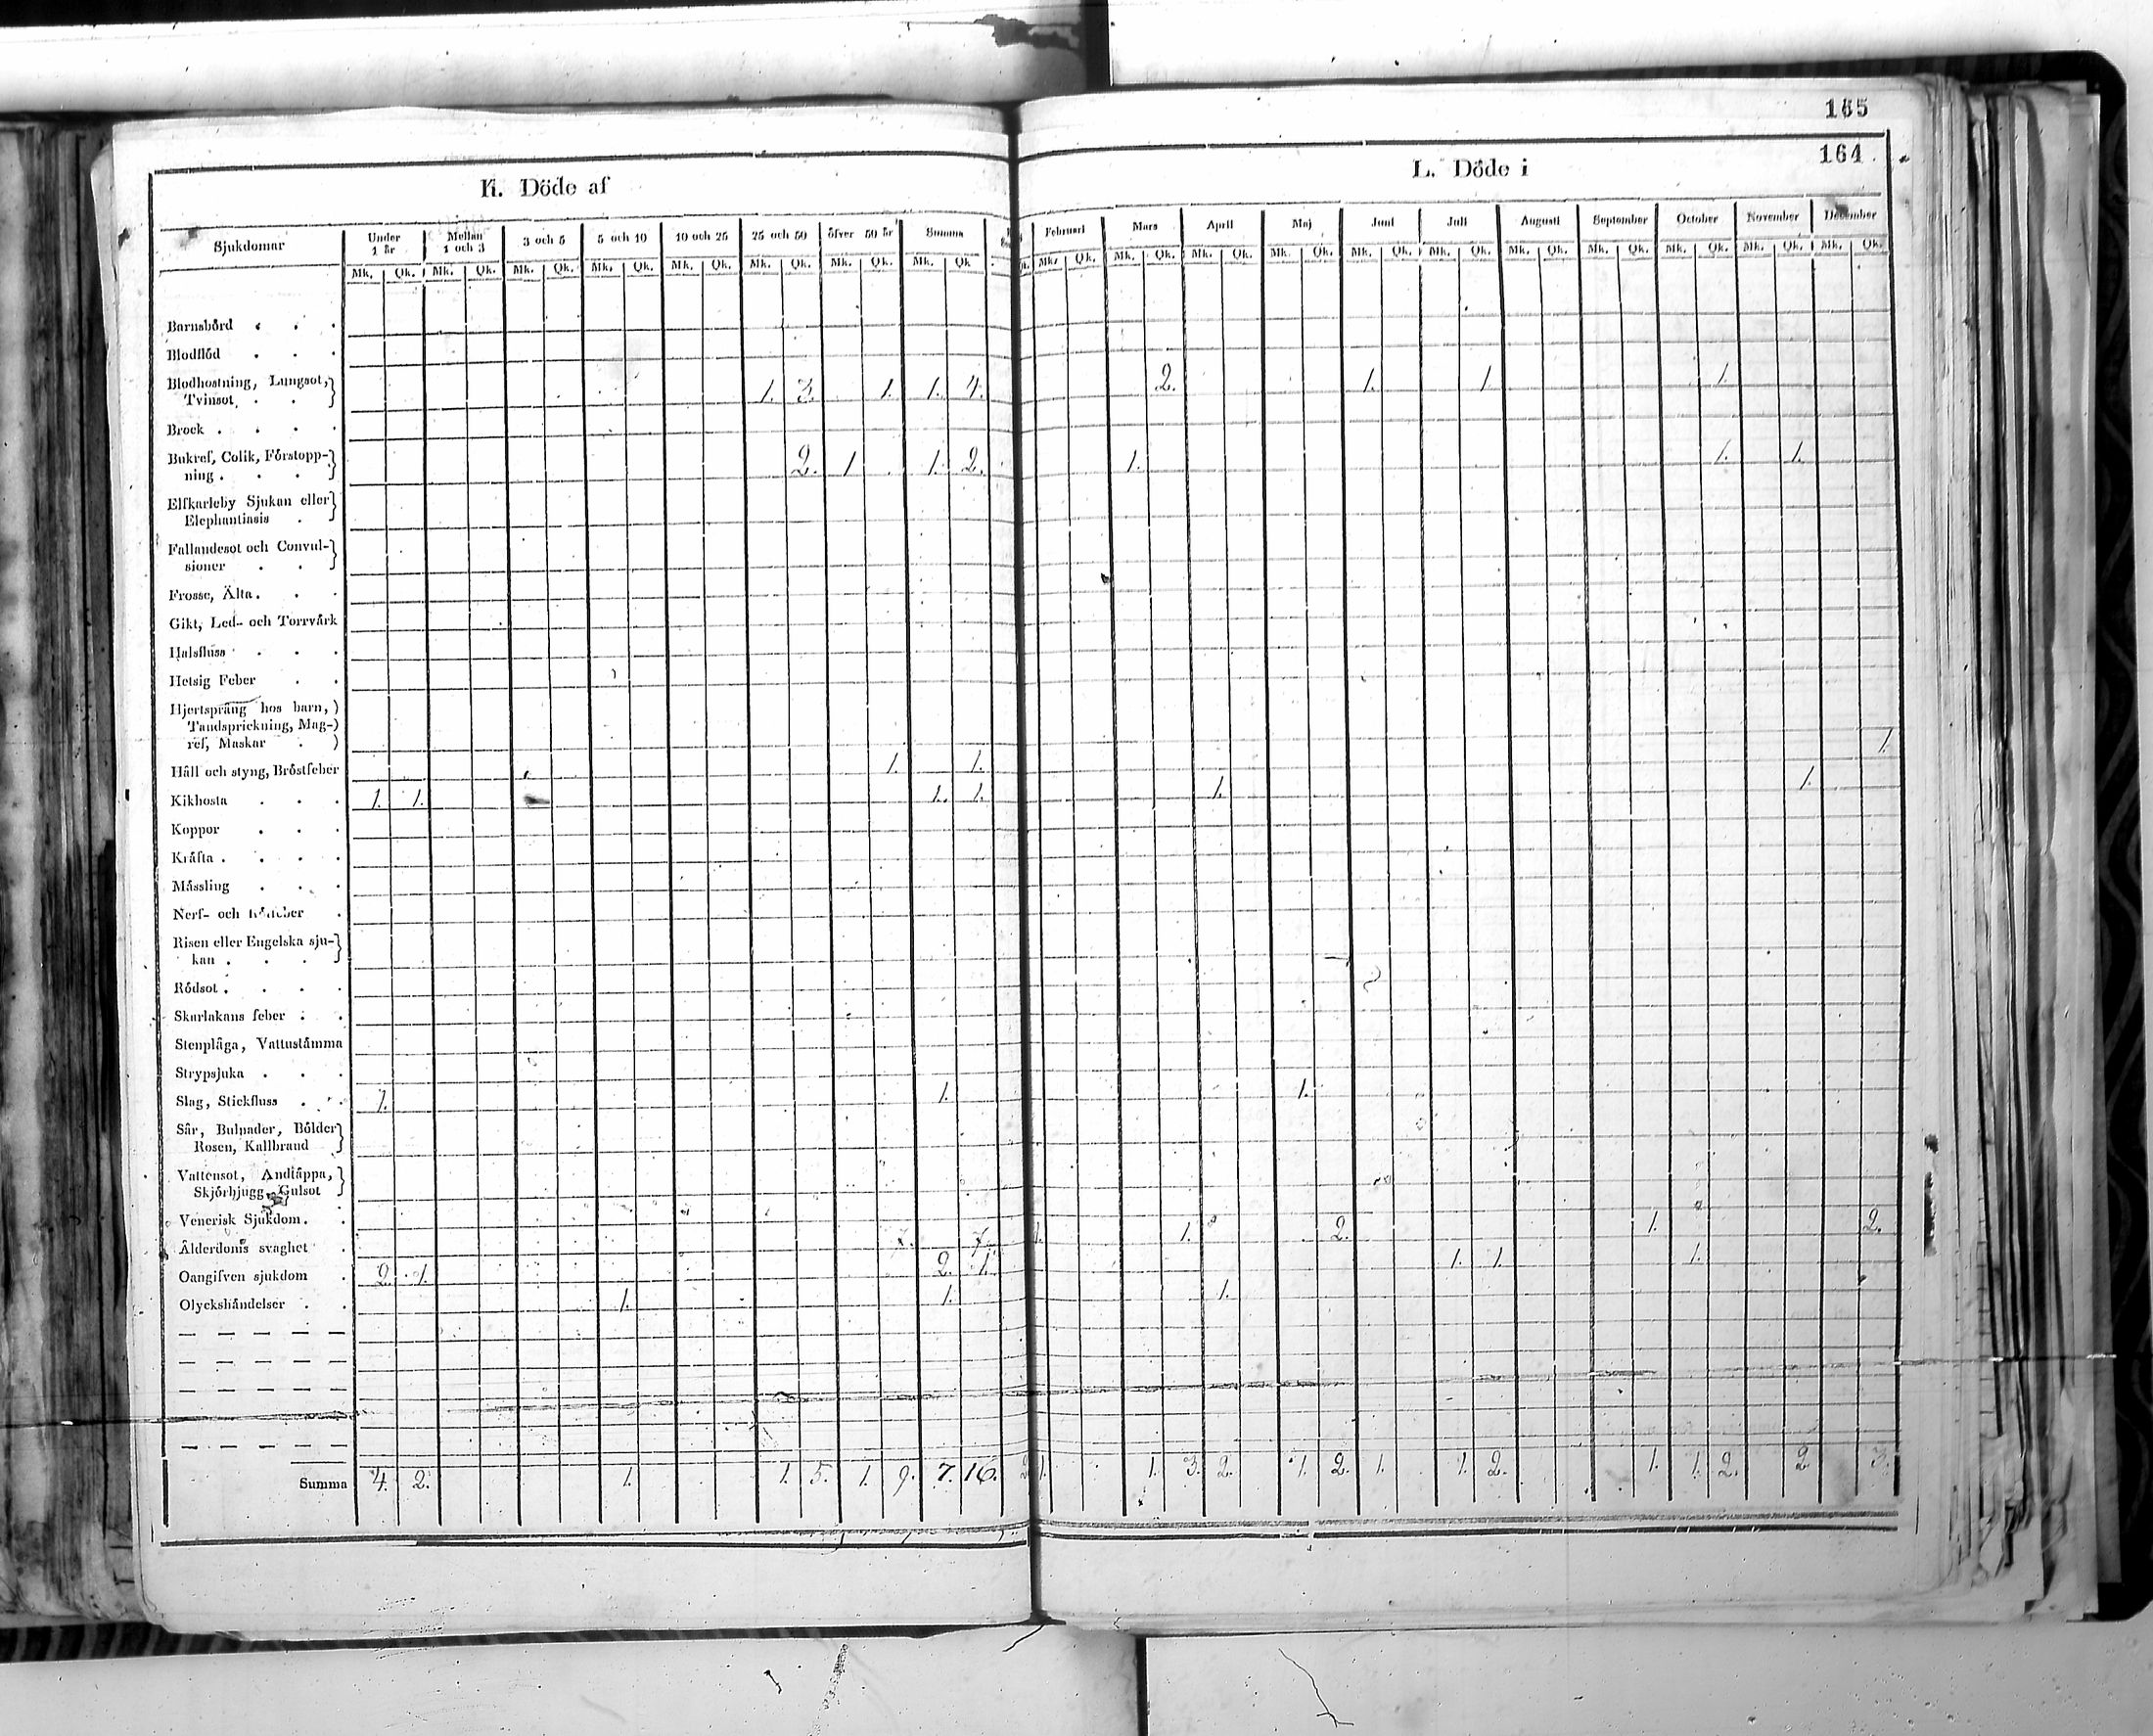 165
164
K. Döde af
L. Döde i
Sjukdomar Under 1 år Mellan 1 och 3 3 och 5 5 och 10 10 och 25 25 och 50 öfver 50 år Summa
Februari Mars April Maj Juni Juli Augusti September October November December
Mk. Qk. Mk. Qk. Mk. Qk. Mk. Qk. Mk. Qk. Mk. Qk. Mk. Qk. Mk. Qk
Mk. Qk. Mk. Qk. Mk. Qk. Mk. Qk. Mk. Qk. Mk. Qk. Mk. Qk. Mk. Qk. Mk. Qk. Mk. Qk. Mk. Qk.
Barnsbörd . . .
Blodflöd . . .
Blodhostning, Lungsot,}
Tvinsot . . } 1. 3. 1. 1. 4. 2. 1. 1. 1.
Brock . . . .
Bukref, Colik, Förstopp-}
ning . . . } 2. 1 1. 2. 1. 1. 1.
Elfkarleby Sjukan eller}
Elephantiasis . }
Fallandesot och Convul-}
sioner . . }
Frosse, Älta . . .
Gikt, Led- och Torrvärk
Halsfluss . . .
Hetsig Feber . .
Hjertsprång hos barn, )
Tandsprickning, Mag-)
ref, Maskar . )
Håll och styng, Bröstfeber 1. 1. 1.
Kikhosta . . . 1. 1. 1. 1. 1. 1.
Koppor . . .
Kräfta . . . .
Mässling . . .
Nerf- och .
Risen eller Engelska sju-}
kan . . . }
Rödsot . . . .
Skarlakans feber . .
Stenplåga, Vattustämma
Strypsjuka . . .
Slag, Stickfluss . . 1. 1. 1.
Sår, Bulnader, Bölder}
Rosen, Kallbrand }
Vattensot, Andtäppa,}
Skjörbjugg, Gulsot }
Venerisk Sjukdom . .
Ålderdoms svaghet . 7. 7. 1. 1. 2. 1. 2.
Oangifven sjukdom . 2. 1. 2. 1. 1. 1. 1.
Olyckshändelser . . 1. 1. 1.
— — — — —
— — — — —
— — — — —
— — — — —
Summa 4. 2. 1. 1. 5. 1. 9. 7. 16. 1. 1. 3. 2. 1. 2. 1. 1. 2. 1. 1. 2. 2 3.